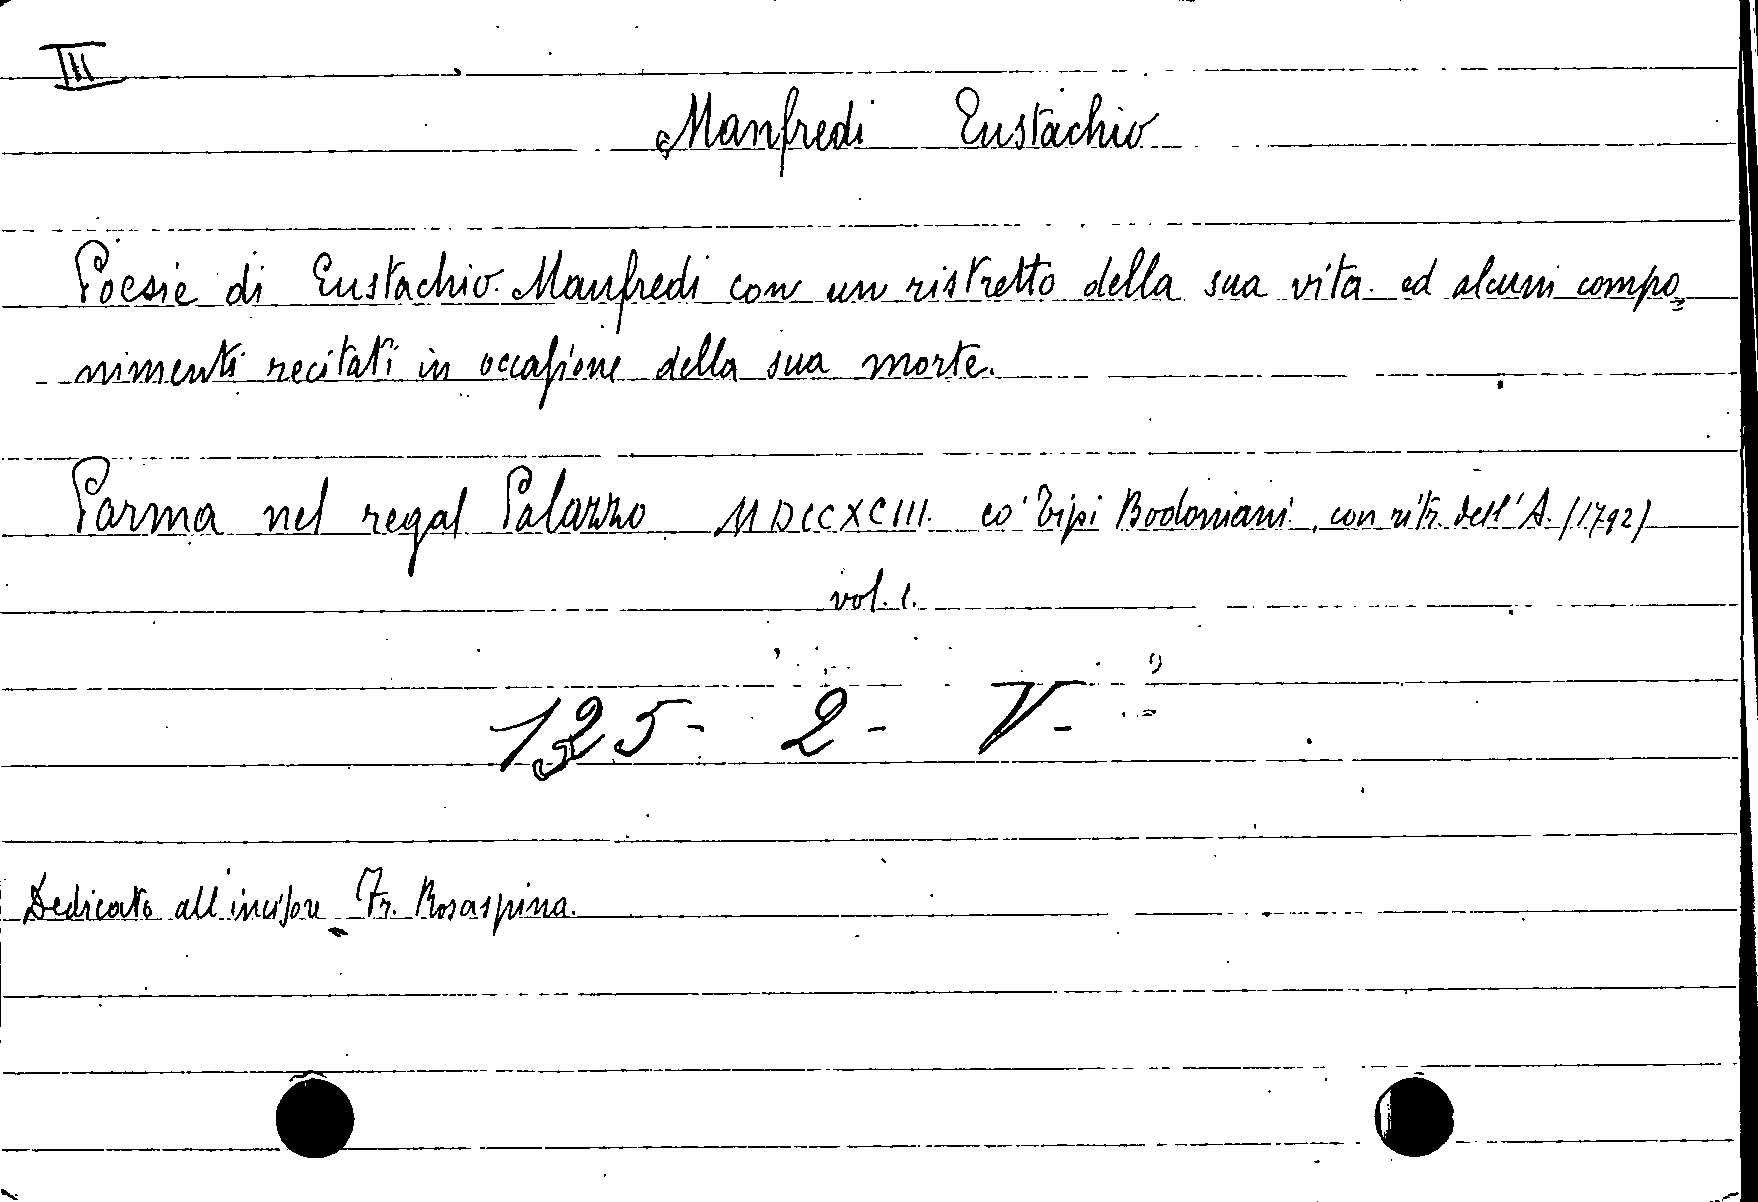 III
Manfredi Eustachio
Poesie di Eustachio Manfredi con un ristretto della sua vita ed alcuni compo=
nimenti recitati in occasione della sua morte.
Parma nel regal Palazzo MDCCXCIII. co' Tipi Bodoniani, con ritr. dell'A. (1792)
vol. 1.
125 - 2 - V -
Dedicato all'incisore Fr. Rosaspina.